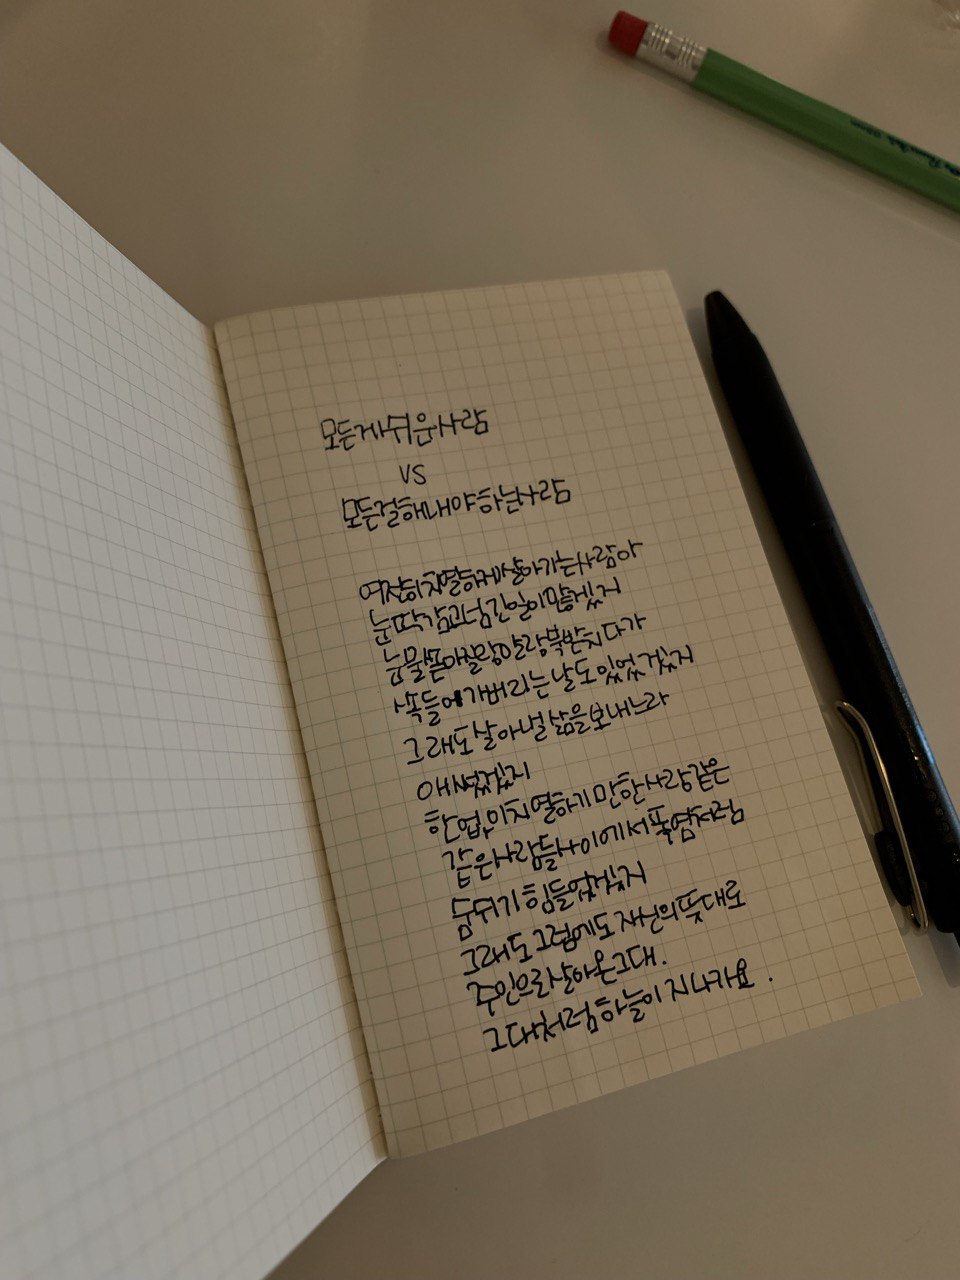 모든게 쉬운 사람
VS
모든걸 해내야 하는 사람
여전히 치열하게 살아가는 사람아
눈 딱 감고 넘긴 일이 많겠지
눈물 쏟아질랑말랑 북받치다가
쏙 들어가버리는 날도 있었겠지
그래도 살아낼 삶을 보내느라
애썼겠지
한없이 치열하기만 한 사랑 같은
같은 사람들 사이에서 폭염처럼
숨쉬기 힘들었겠지
그래도 그럼에도 자신의 뜻대로
주인으로 살아온 그대.
그대처럼 하늘이 지나가요.